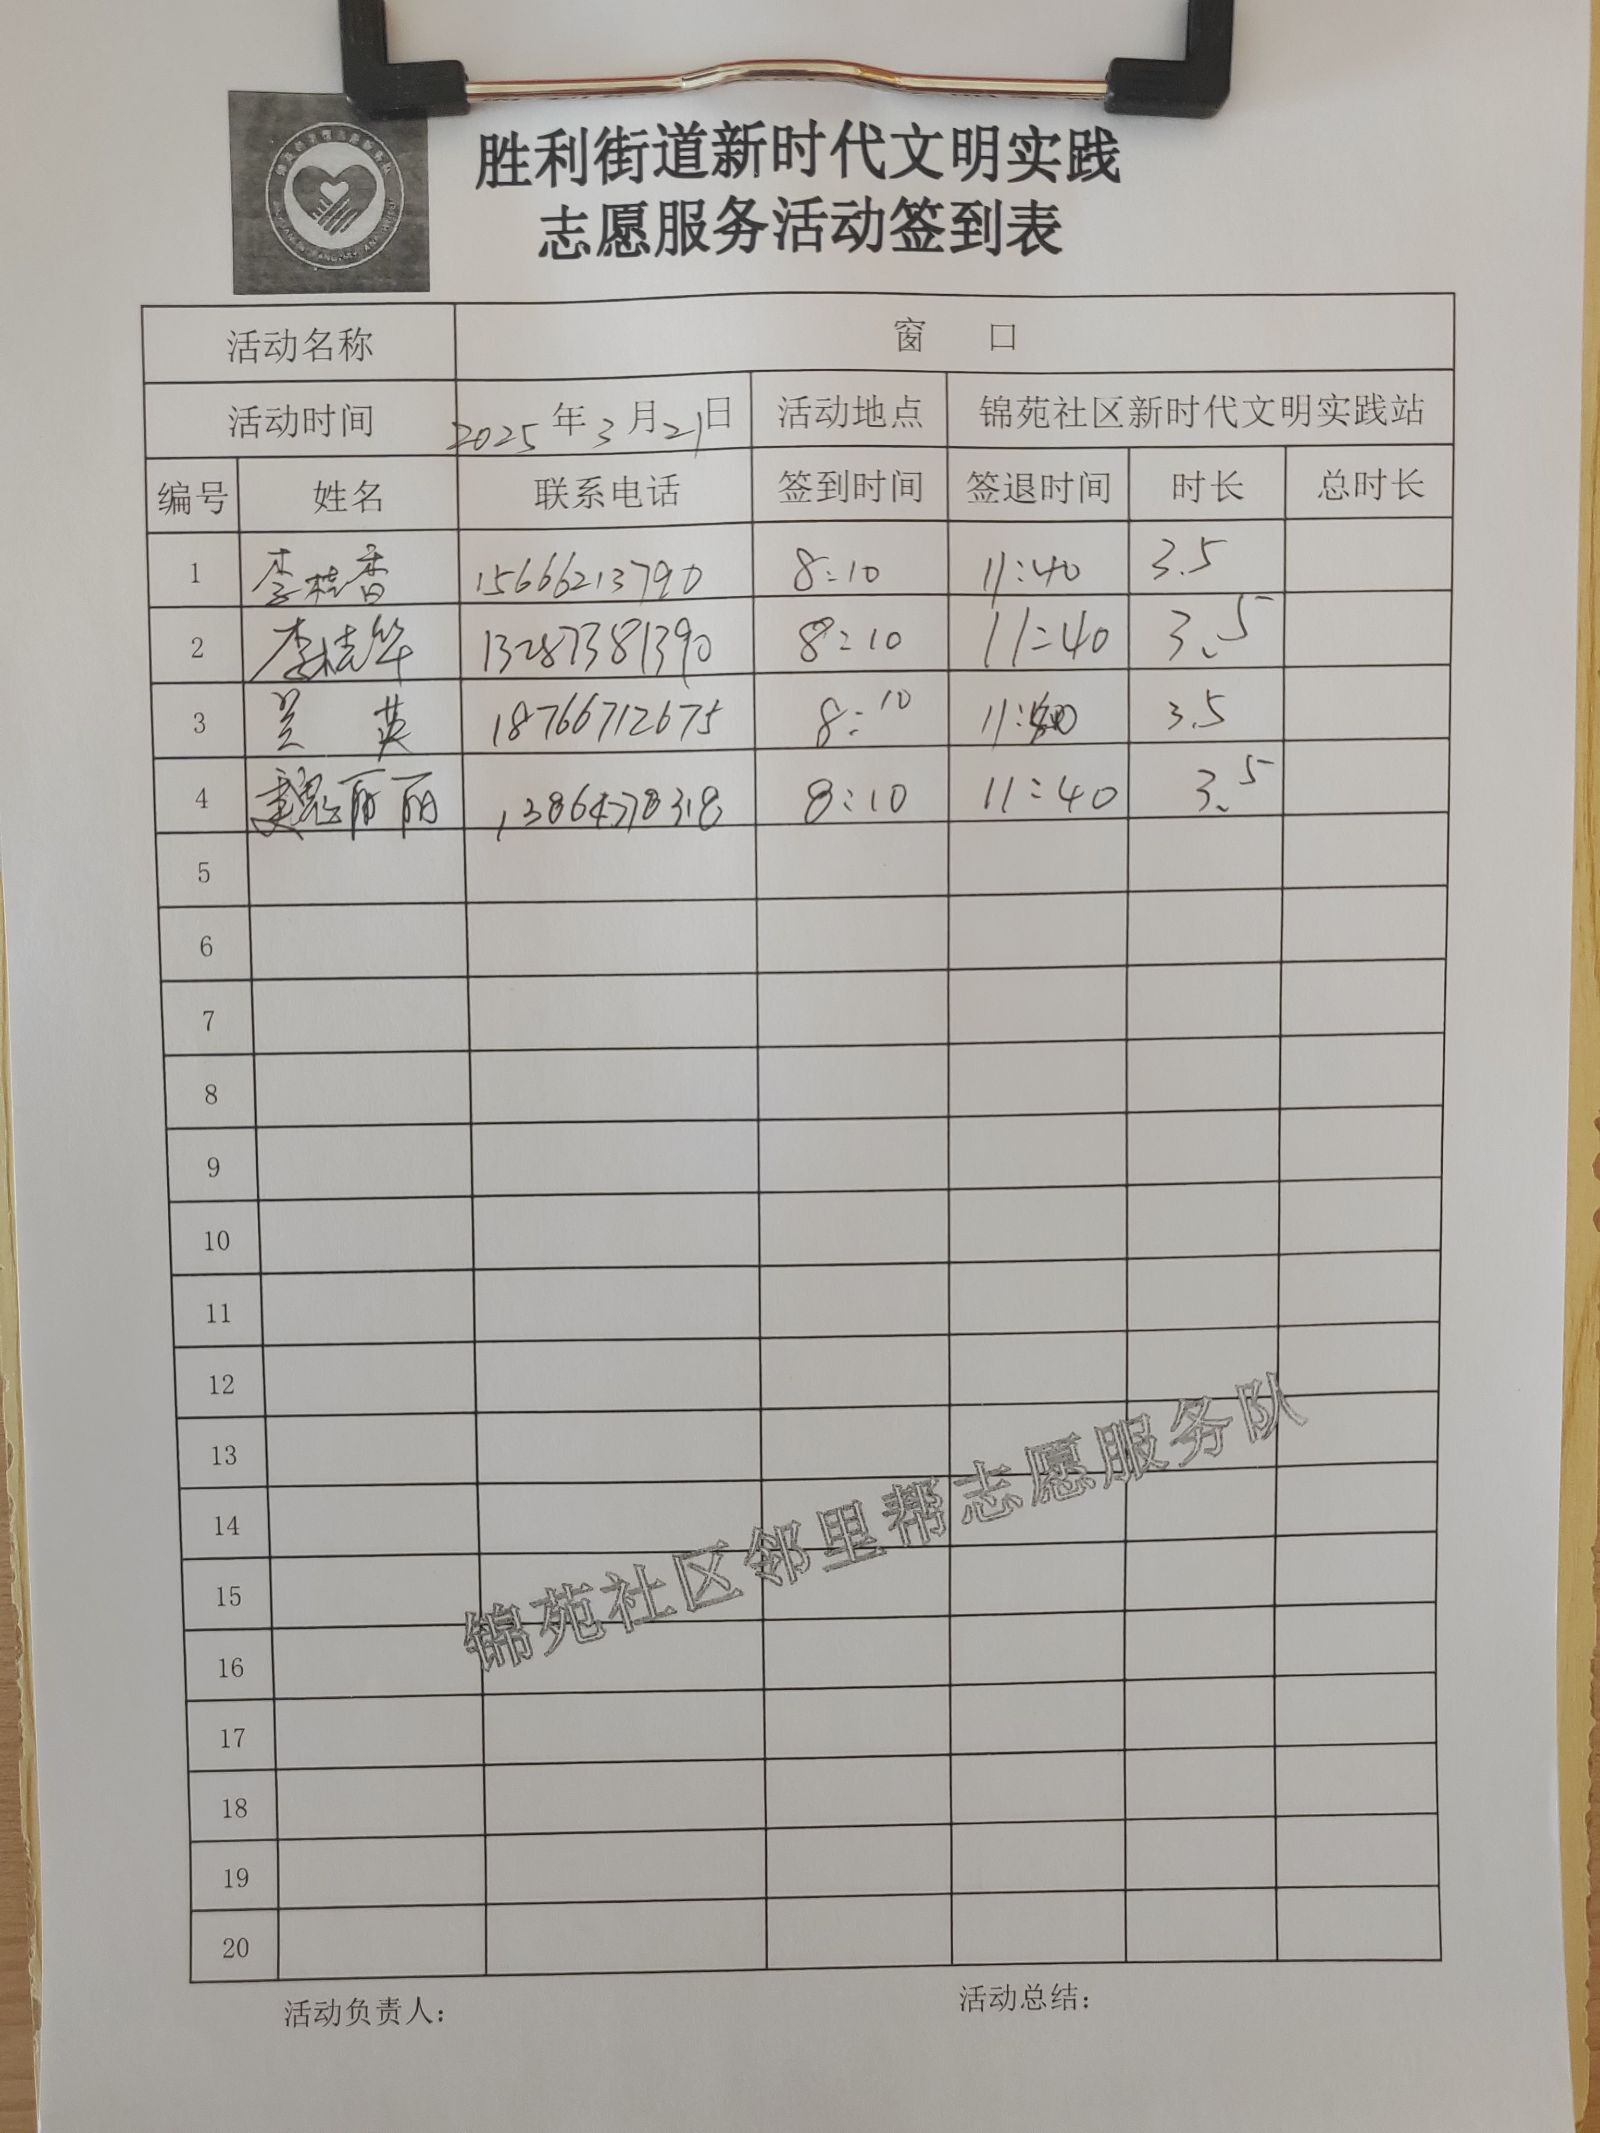 胜利街道新时代文明实践
志愿服务活动签到表
活动名称 窗 口
活动时间 2025年3月21日 活动地点 锦苑社区新时代文明实践站
编号 姓名 联系电话 签到时间 签退时间 时长 总时长
1 李桂香 15666213790 8:10 11:40 3.5
2 李桂华 13287381390 8:10 11:40 3.5
3 兰 英 18766712675 8:10 11:40 3.5
4 魏丽丽 8:10 11:40 3.5
5
6
7
8
9
10
11
12
13
14
15
16
17
18
19
20
锦苑社区邻里帮志愿服务队
活动负责人： 活动总结：